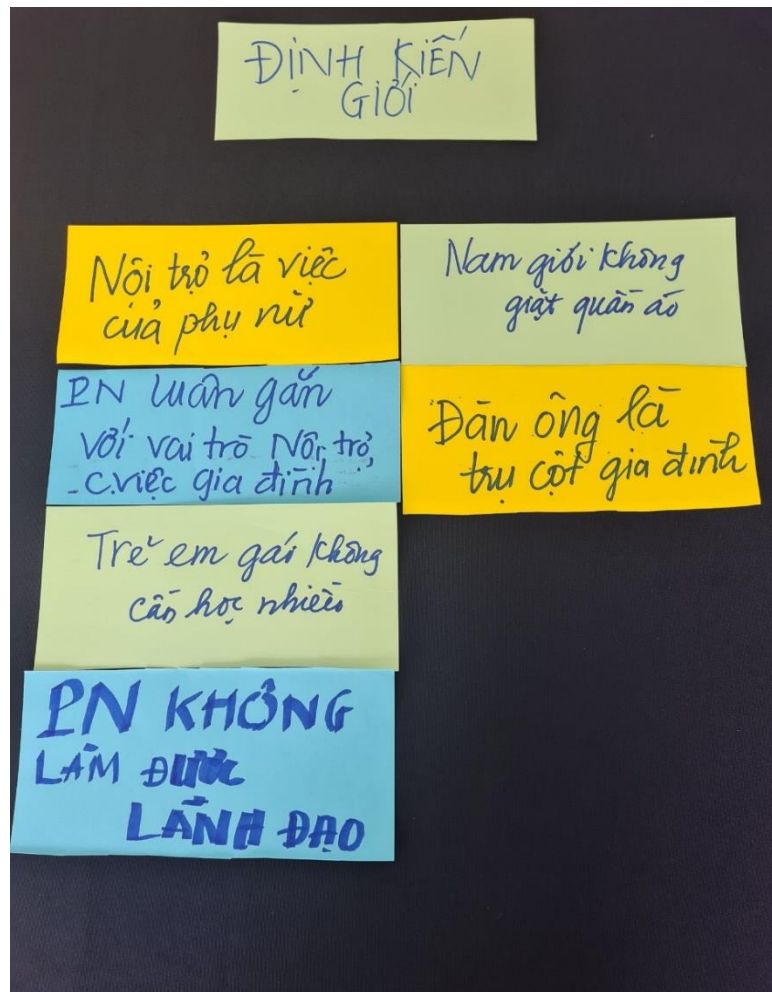 ĐỊNH KIẾN
GIỚI
Nội trợ là việc
của phụ nữ
PN luôn gắn
với vai trò Nội trợ,
C.việc gia đình
Trẻ em gái không
cần học nhiều
PN KHÔNG
LÀM ĐƯỢC
LÃNH ĐẠO
Nam giới không
giặt quần áo
Đàn ông là
trụ cột gia đình